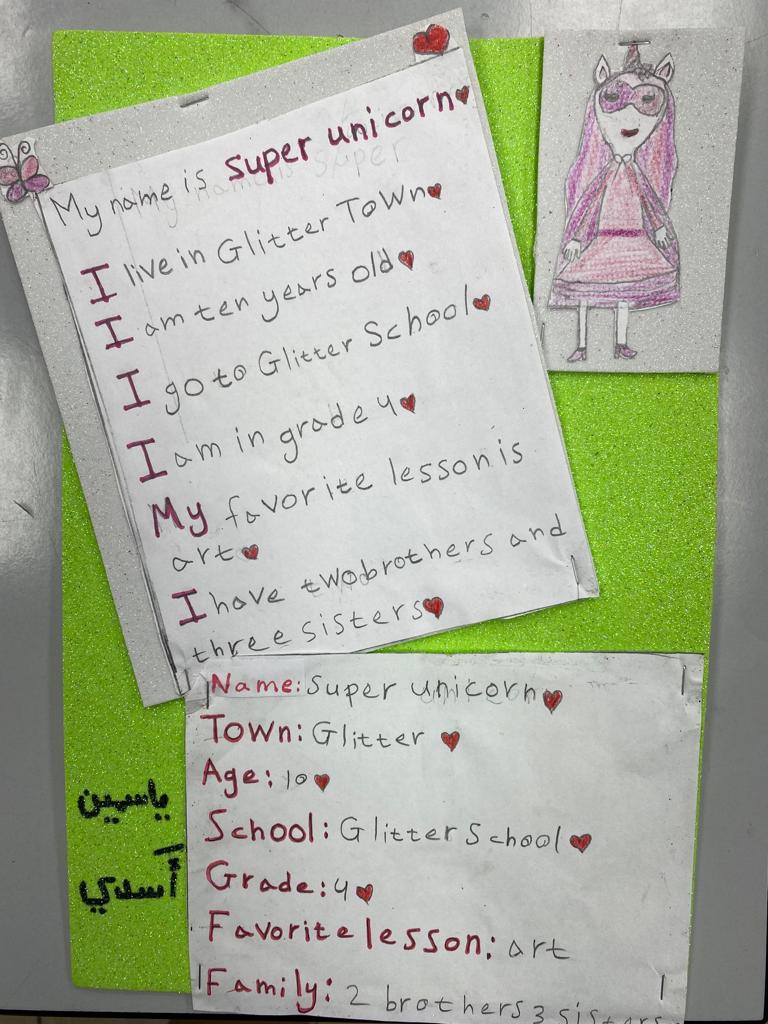 My name is super unicorn
I live in Glitter Town
I am ten years old
I go to Glitter School
I am in grade 4
My favorite lesson is
art
I have two brothers and
three sisters
Name: Super unicorn
Town: Glitter
Age: 10
School: Glitter School
Grade: 4
Favorite lesson: art
Family: 2 brothers 3 sisters
ياسين
أسدي